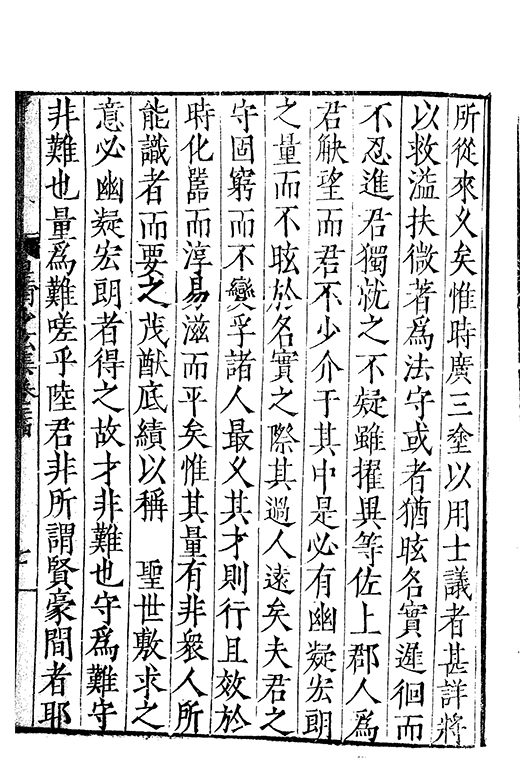 所從來久矣惟時廣三塗以用士議者甚詳將
以救溢扶微著爲法守或者猶眩名實遲徊而
不忍進君獨忱之不疑雖擢異等佐上郡人爲
君觖望而君不少介于其中是必有幽凝宏朗
之量而不眩於名實之際其過人遠矣夫君之
守固窮而不變孚諸人最久其才則行且效於
時化嚚而淳易滋而平矣惟其量有非衆人所
能識者而要之茂猷底績以稱　聖世敷求之
意必幽凝宏朗者得之故才非難也守爲難守
非難也量爲難嗟乎陸君非所謂賢豪間者耶